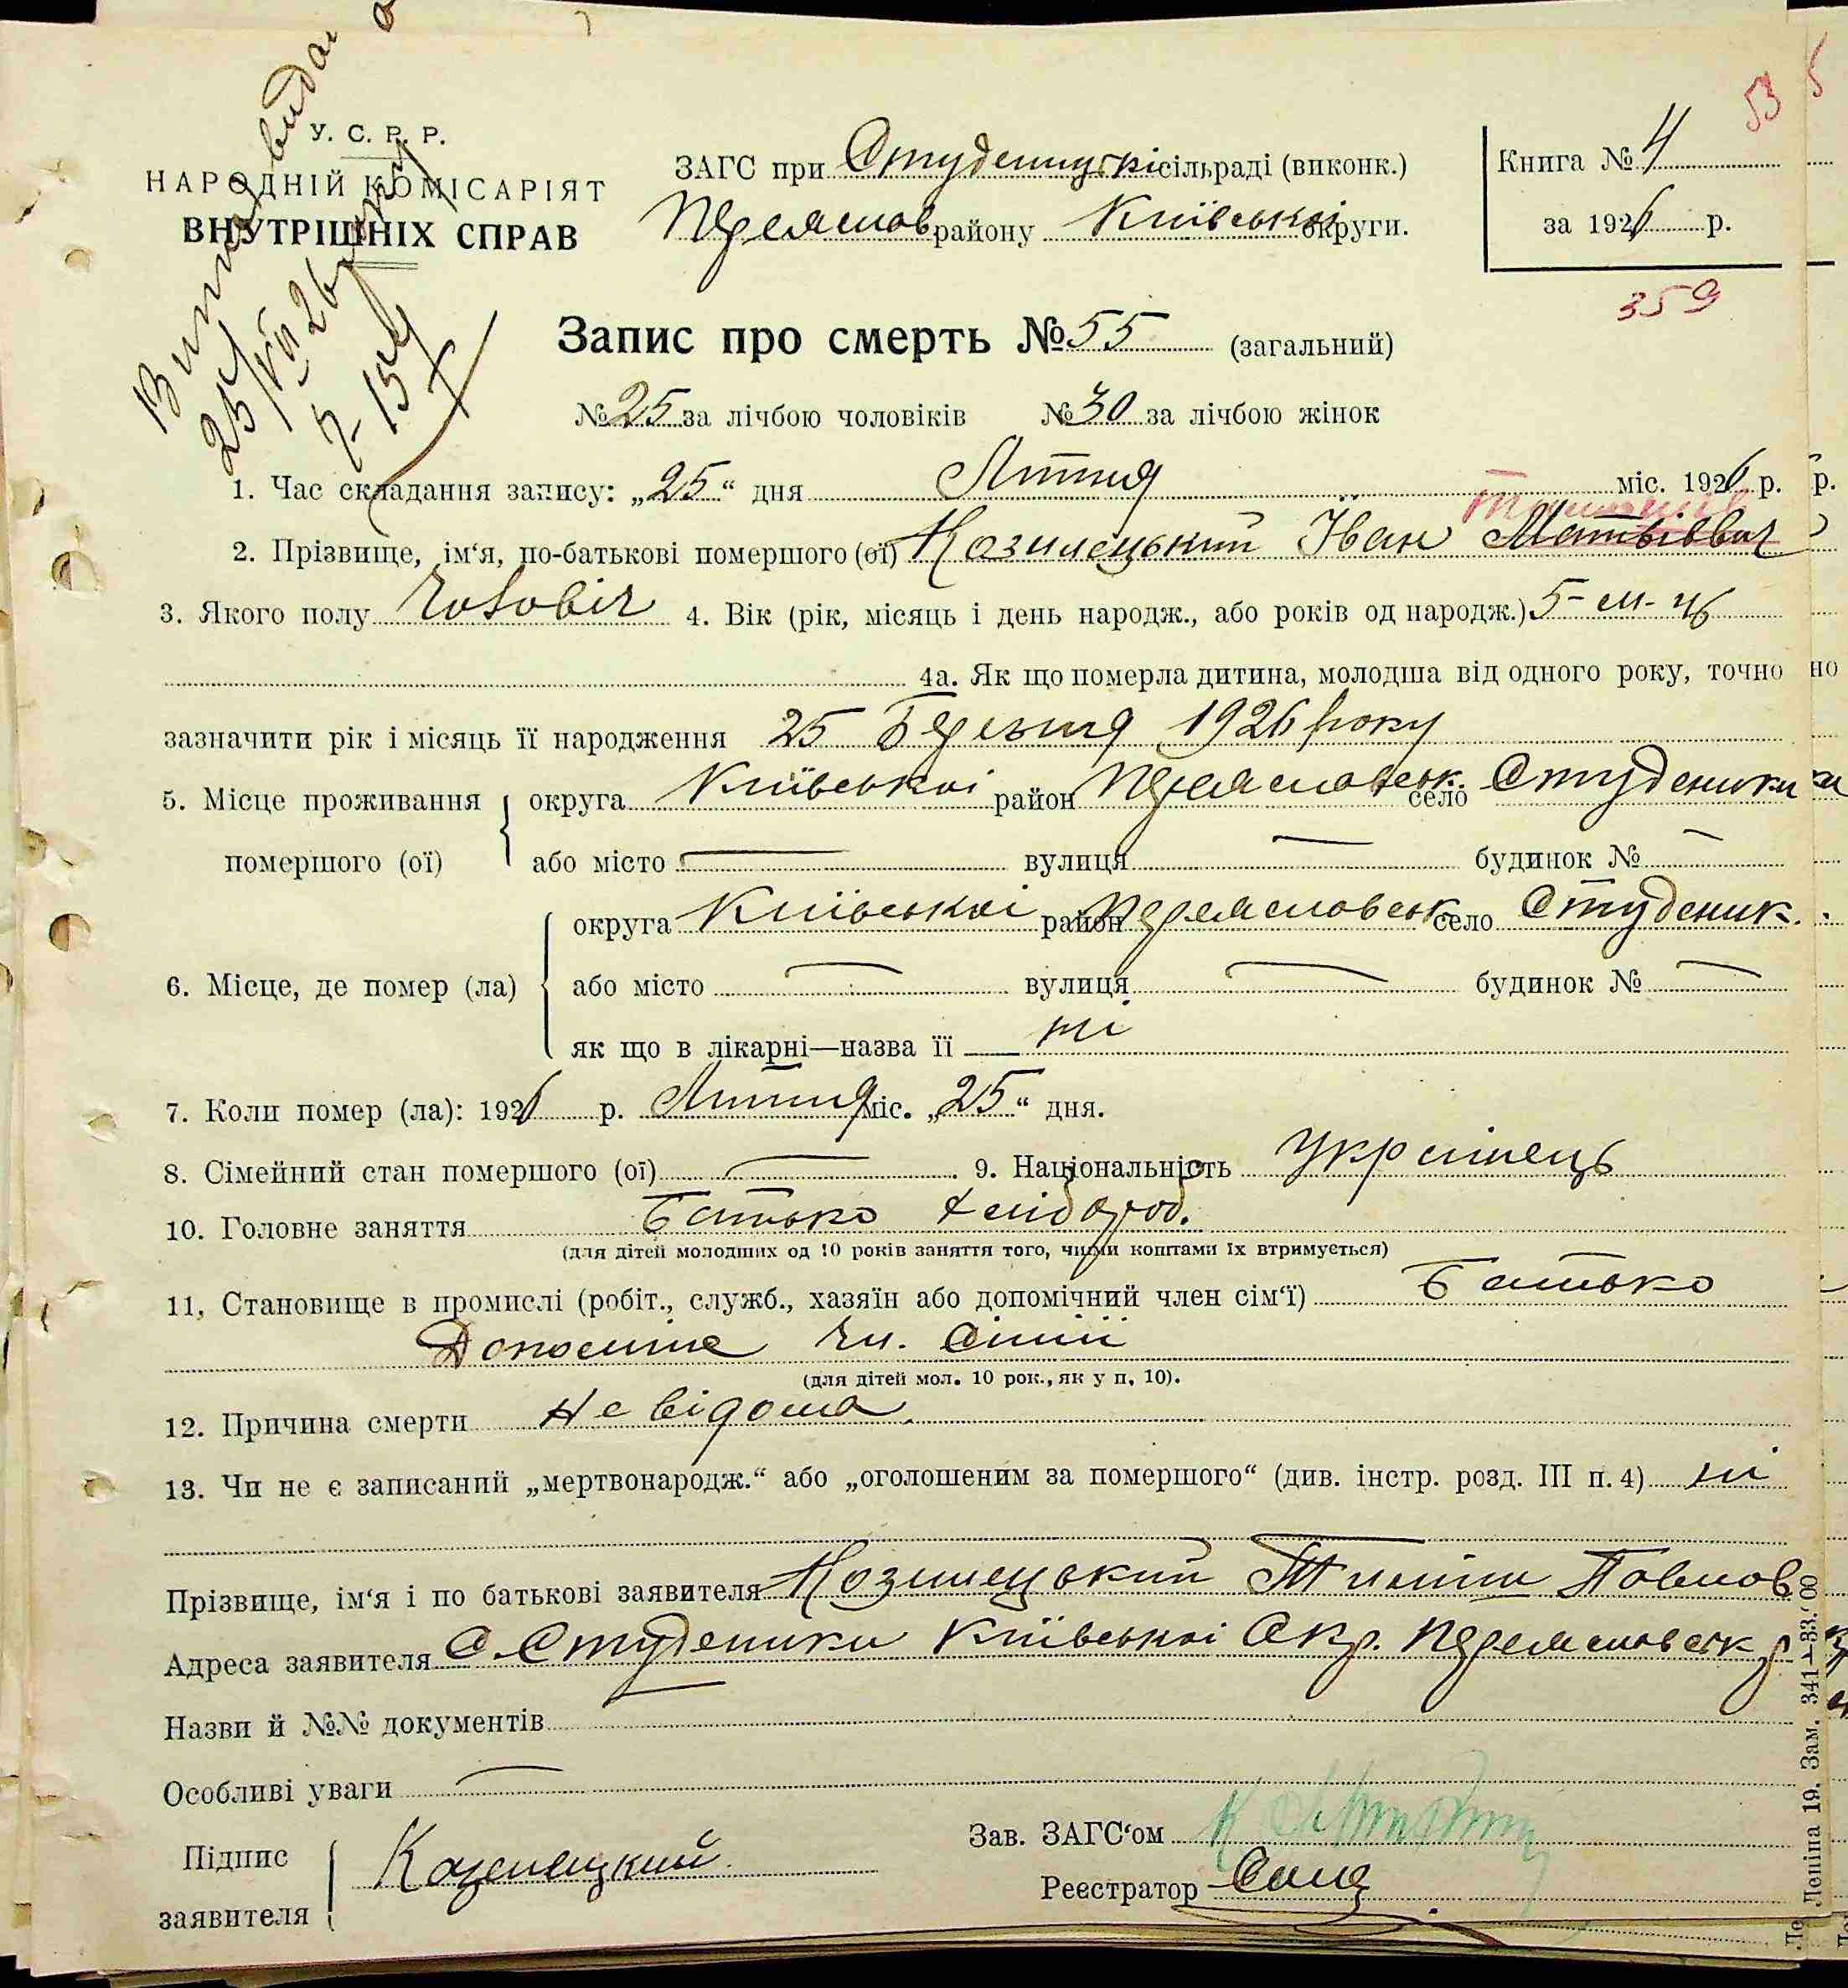 53
У. С. Р. Р.
НАРОДНІЙ КОМІСАРІЯТ
ВНУТРІШНІХ СПРАВ
ЗАГС при Студеницькі сільраді (виконк.)
Переяслов району Київської округи.
Книга № 4
за 1926 р.
359
25/VII 26
Запис про смерть № 55 (загальний)
№ 25 за лічбою чоловіків № 30 за лічбою жінок
1. Час складання запису: „25“ дня Липня міс. 1926 р.
2. Прізвище, ім‘я, по-батькові помершого (ої) Козилецький Іван Матвієвич
3. Якого полу чоловіч 4. Вік (рік, місяць і день народж., або років од народж.) 5-м-ців
4а. Як що померла дитина, молодша від одного року, точно
зазначити рік і місяць її народження 25 Березня 1926 року
5. Місце проживання помершого (ої) округа Київської район Переясловськ. село Студеники
або місто — вулиця — будинок № —
6. Місце, де помер (ла) округа Київської район Переясловськ село Студеник.
або місто — вулиця — будинок № —
як що в лікарні—назва її ні
7. Коли помер (ла): 1926 р. Липня міс. „25“ дня.
8. Сімейний стан помершого (ої) — 9. Національність Українець
10. Головне заняття Батько хлібороб.
(для дітей молодших од 10 років заняття того, чиїми коштами їх втримується)
11, Становище в промислі (робіт., служб., хазяїн або допомічний член сім‘ї) Батько
чл. сімії
(для дітей мол. 10 рок., як у п, 10).
12. Причина смерти Не відома.
13. Чи не є записаний „мертвонародж.“ або „оголошеним за помершого“ (див. інстр. розд. III п. 4) ні
Прізвище, ім‘я і по батькові заявителя Козилецький Тиміш Павлов
Адреса заявителя С. Студеники Київської Окр. Переясловськ р
Назви й №№ документів
Особливі уваги —
Підпис заявителя Козелецкий
Зав. ЗАГС‘ом
Реєстратор
Леніна 19. Зам. 341—33.